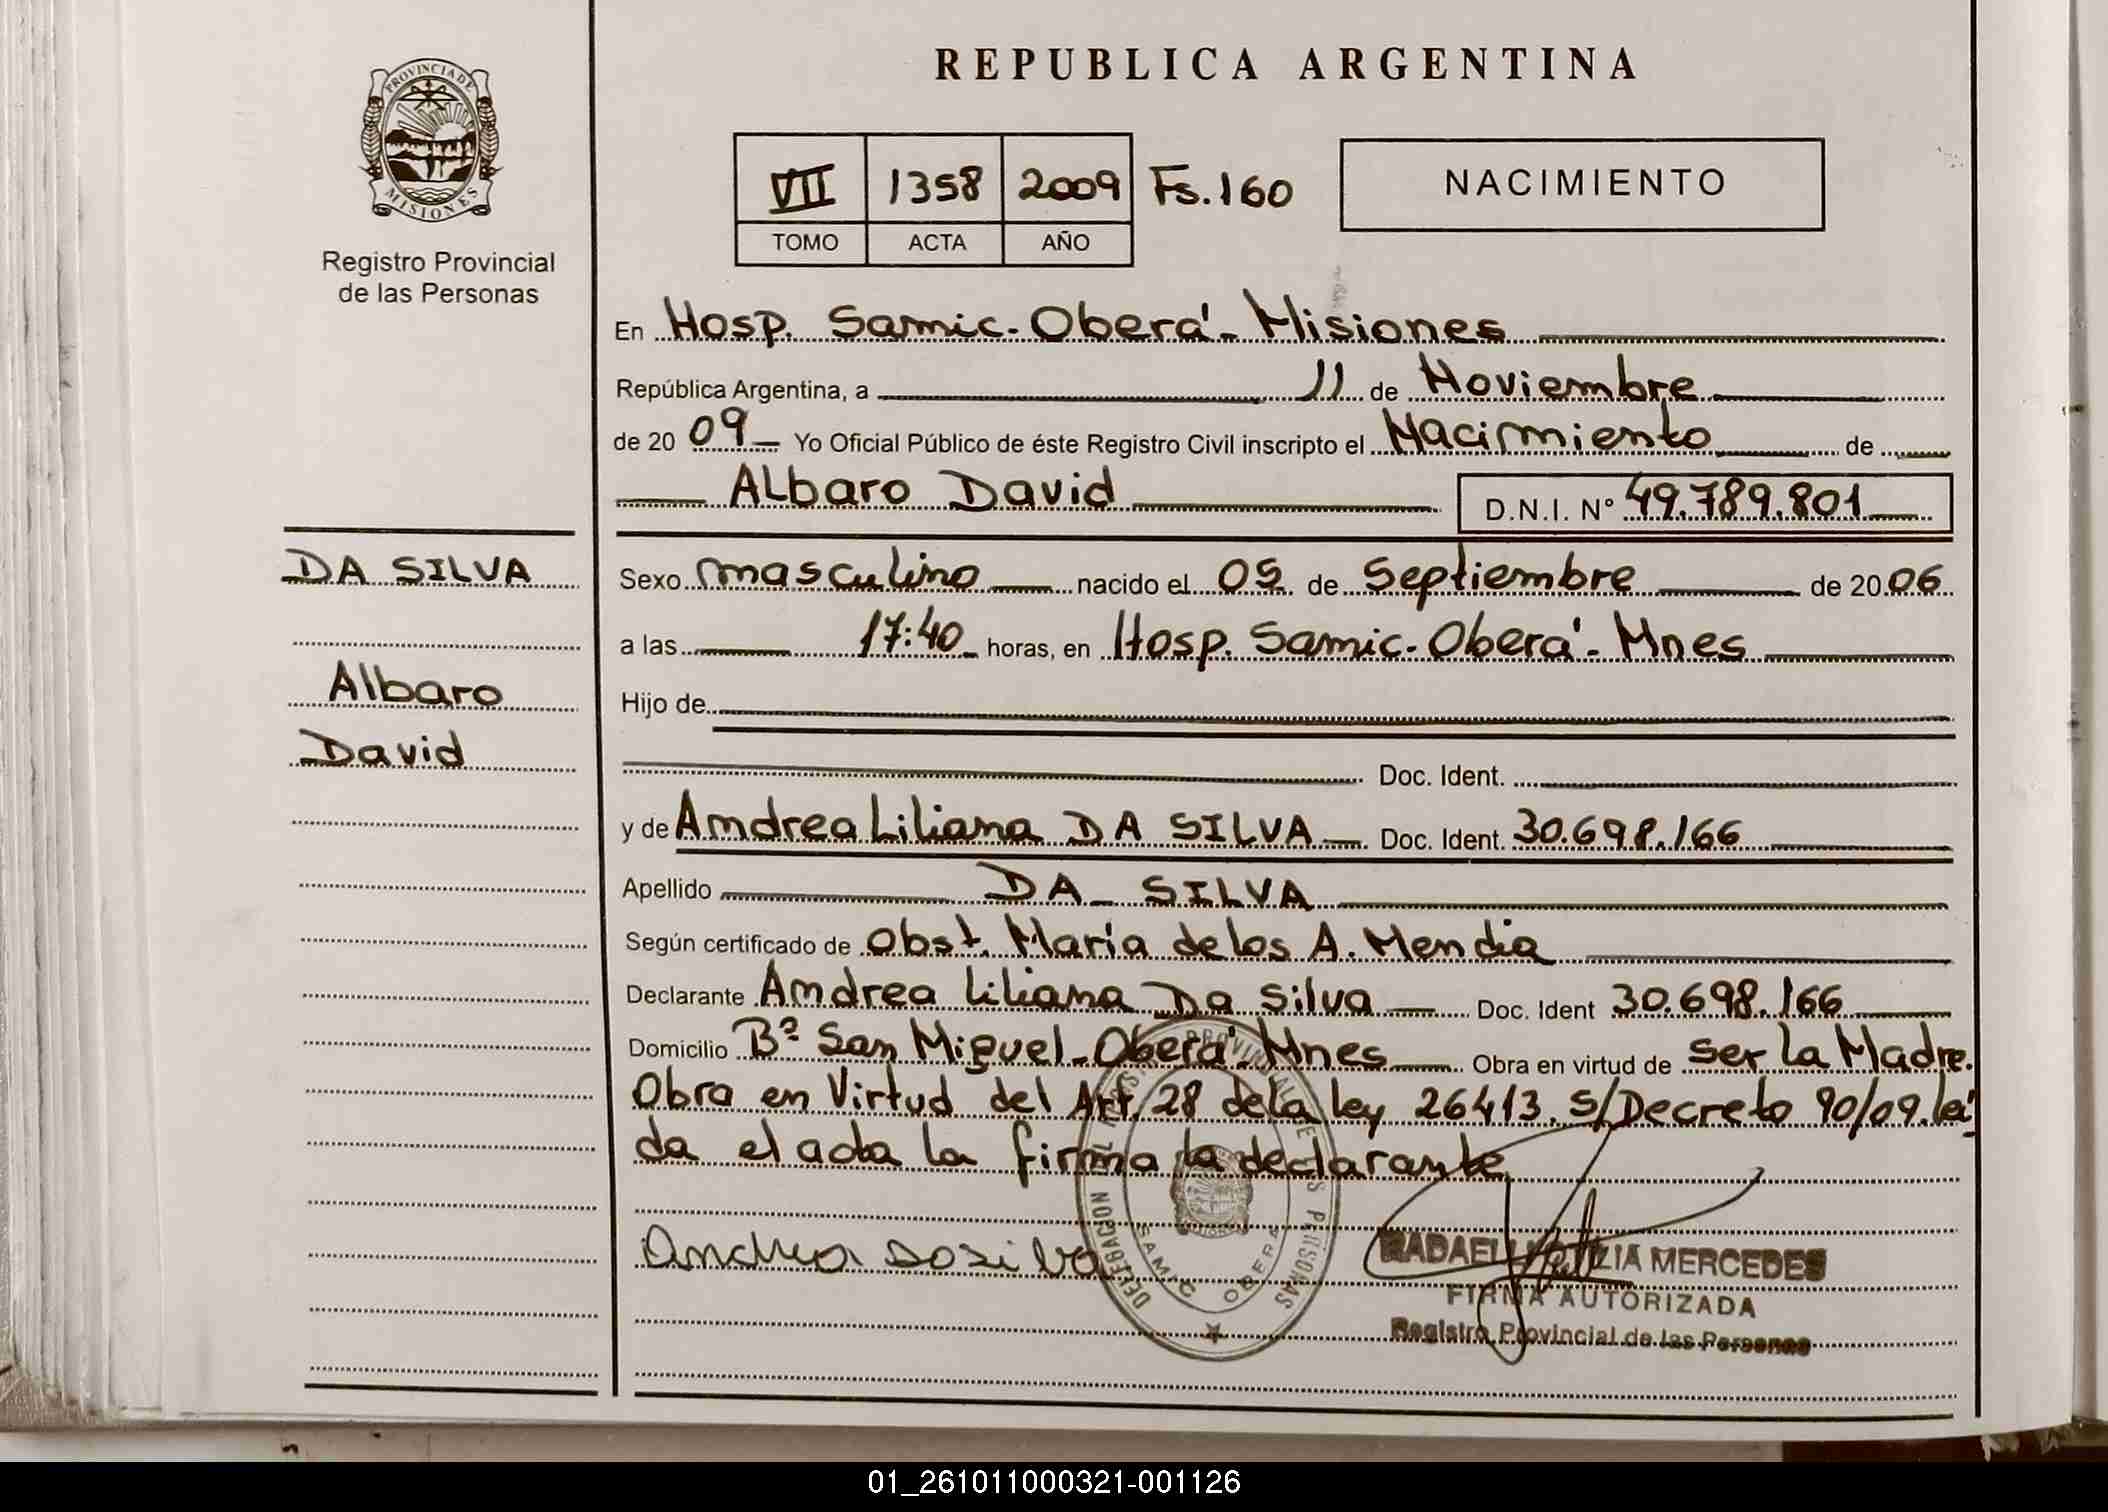 PROVINCIA DE
MISIONES
Registro Provincial
de las Personas
REPUBLICA ARGENTINA
VII 1358 2009 Fs.160
TOMO ACTA AÑO
NACIMIENTO
En Hosp. Samic-Oberá-Misiones
República Argentina, a 11 de Noviembre
de 20 09 Yo Oficial Público de éste Registro Civil inscripto el Nacimiento de
ALbaro David D.N.I. Nº 49.789.801
DA SILVA
Albaro
David
Sexo masculino nacido el 05 de Septiembre de 20 06
a las 17:40 horas, en Hosp. Samic-Oberá-Mnes
Hijo de
Doc. Ident.
y de Andrea Liliana DA SILVA Doc. Ident. 30.698.166
Apellido DA SILVA
Según certificado de Obst. María de los A. Mendia
Declarante Andrea Liliana Da Silva Doc. Ident 30.698.166
Domicilio Bº San Miguel-Oberá-Mnes Obra en virtud de ser La Madre.
Obra en Virtud del Art. 28 de la ley 26413. S/Decreto 90/09. leí
da el acta la firma la declarante
DELEGACION REGISTRO PROVINCIAL DE LAS PERSONAS
SAMIC OBERA
MERCEDES
FIRMA AUTORIZADA
Registro Provincial de las Personas
01_261011000321-001126